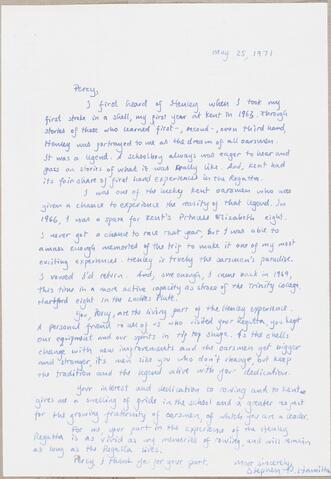 May 25, 1971
Percy,
I first heard of Henley when I took my
first stroke in a shell, my first year at Kent in 1963. Through
stories of those who learned first-, second-, even third hand,
Henley was portrayed to me as the dream of all oarsmen.
It was a legend. A schoolboy always was eager to hear and
pass on stories of what it was really like. And, Kent had
its fair share of first hand experiences in the Regatta.
I was one of the lucky Kent oarsmen who was
given a chance to experience the reality of that legend. In
1966, I was a spare for Kent's Princess Elizabeth eight.
I never got a chance to race that year, but I was able to
amass enough memories of the trip to make it one of my most
exciting experiences. Henley is truly the oarsmen's paradise.
I vowed I'd return. And, sure enough, I came back in 1969,
this time in a more active capacity as stroke of the Trinity College,
Hartford eight in the Ladies Plate.
You, Percy, are the living part of the Henley experience.
A personal friend to all of us who visited your Regatta, you kept
our equipment and our spirits in tip top shape. As the shells
change with new improvements and the oarsmen get bigger
and stronger, its men like you who don't change, but keep
the tradition and the legend alive with your dedication.
Your interest and dedication to rowing and to Kent
gives me a smelling of pride in the school and a greater respect
for the growing fraternity of oarsmen, of which you are a leader.
For me your part in the experience of the Henley
Regatta is as vivid as my memories of rowing and will remain
as long as the Regatta lives.
Percy I thank you for your part.
Most sincerely,
Stephen